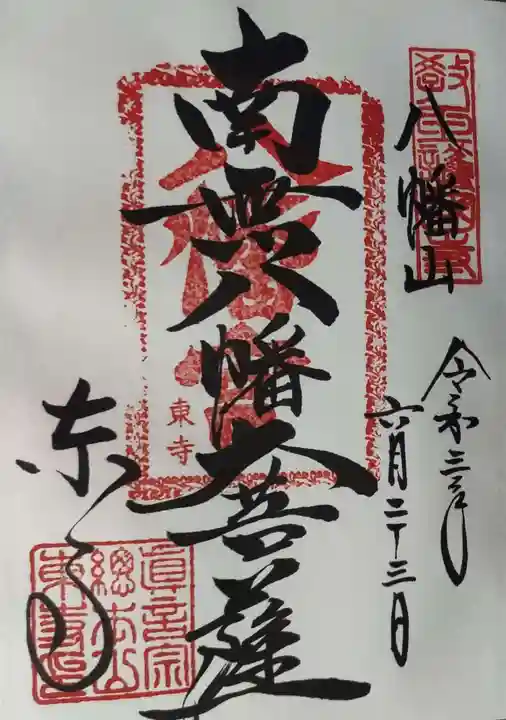 八幡山
令和三年
六月二十三日
南無八幡大菩薩
東寺
東寺
真言宗
総本山
東寺印